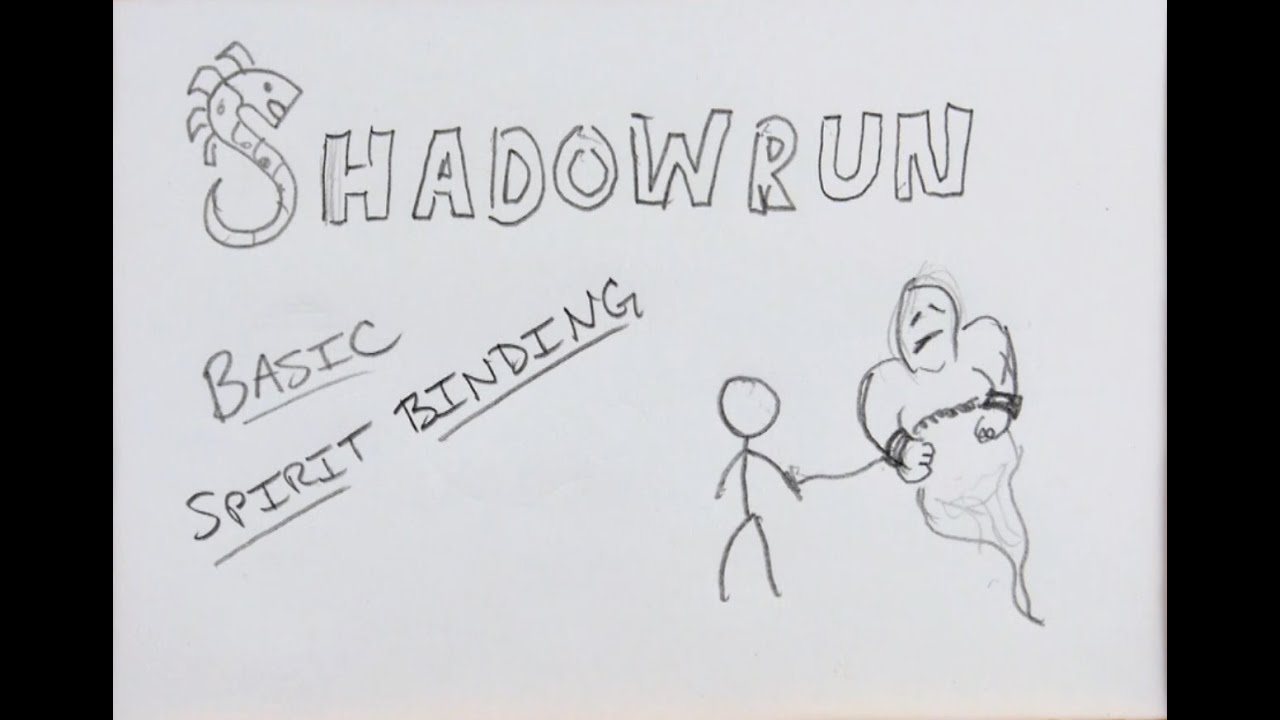 SHADOWRUN
BASIC
SPIRIT BINDING